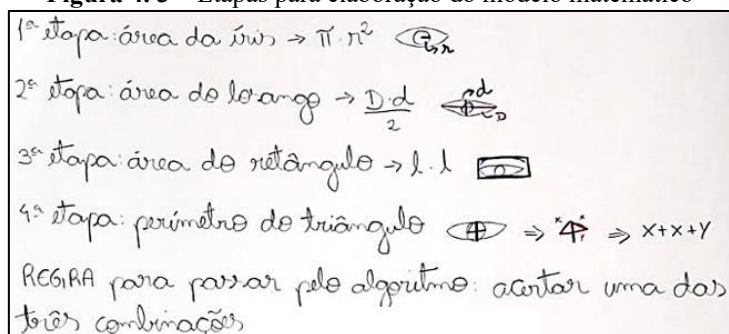 Figura 4. 3 – Etapas para elaboração do modelo matemático
1ª etapa: área da íris → π · r² r
2ª etapa: área do losango → D·d/2 d D
3ª etapa: área do retângulo → l · l
4ª etapa: perímetro do triângulo ⇒ x x y ⇒ x+x+y
REGRA para passar pelo algoritmo: acertar uma das
três combinações